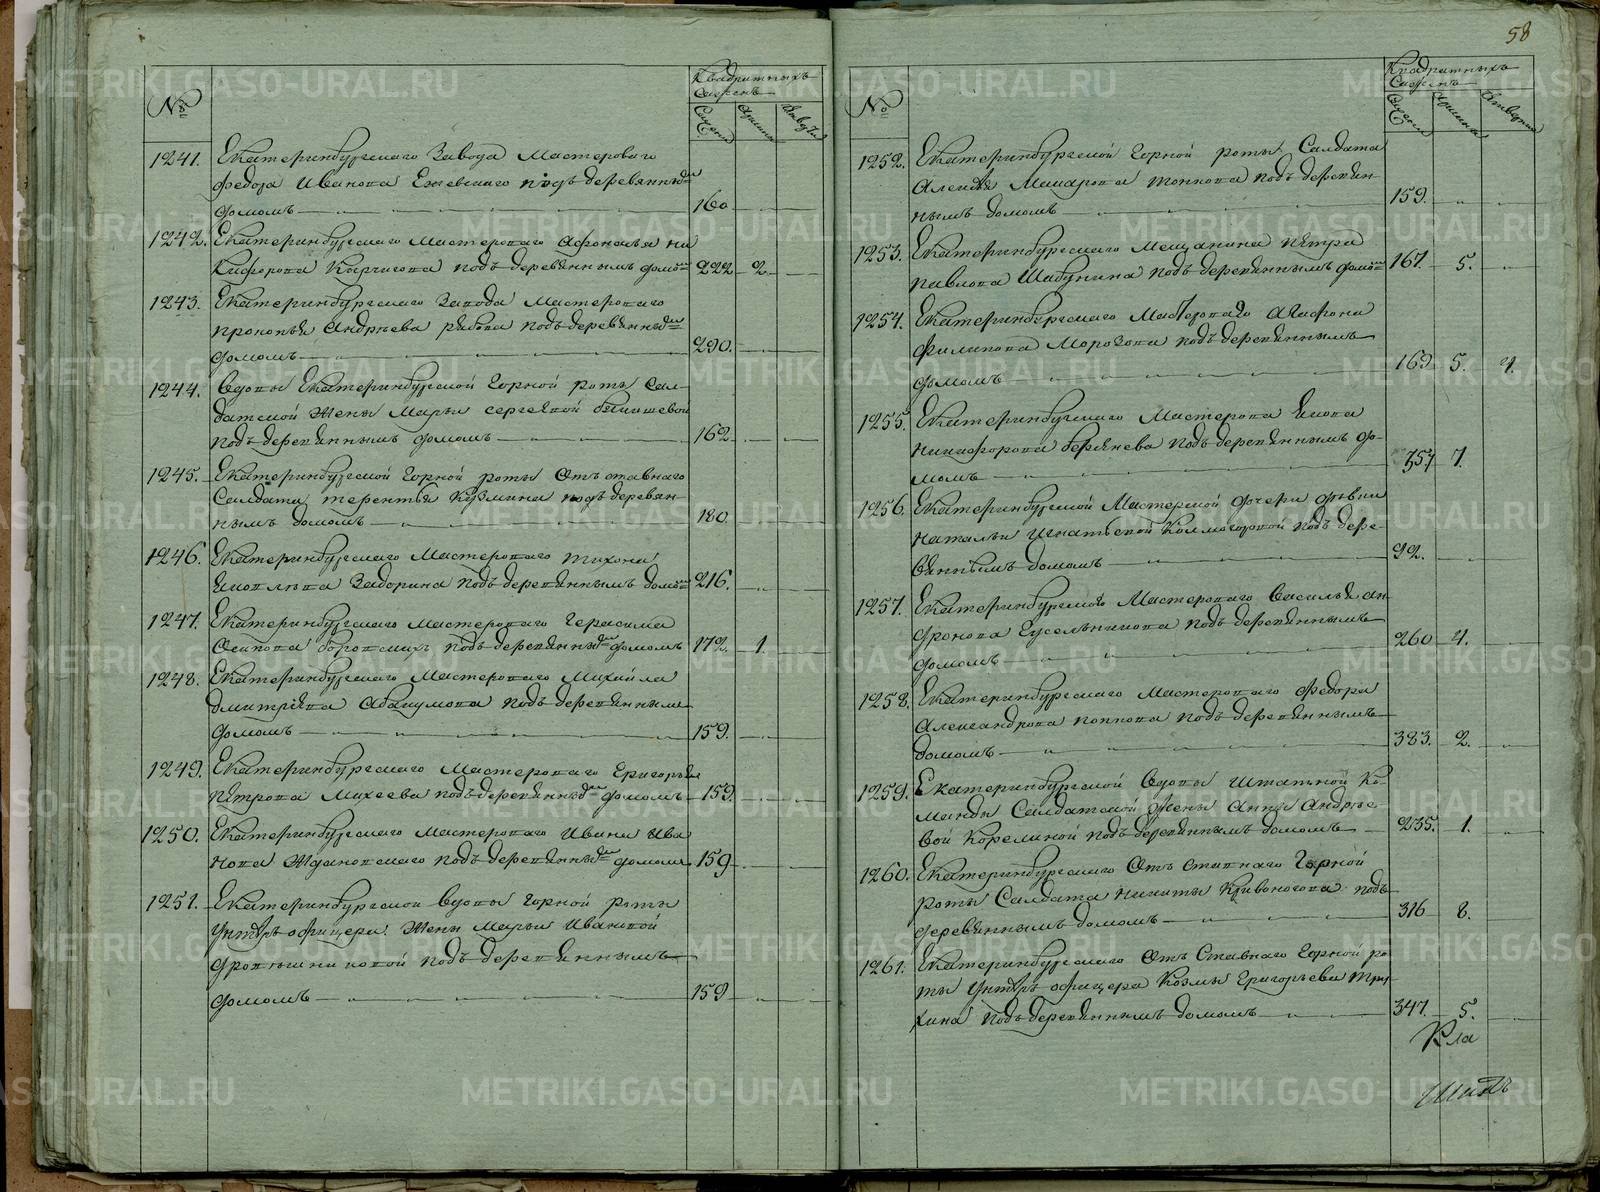 58
№
Квадратныхъ
Саженъ
Сажени
Аршины
1241. Екатеринбургскаго Завода Мастероваго
Федора Иванова Ежевскаго подъ деревяннымъ
домомъ 160
1242. Екатеринбургскаго Мастероваго Афонасья Ни
кифорова подъ деревяннымъ домомъ 222 2
1243. Екатеринбургскаго Завода Мастероваго
Прокопья Андреева подъ деревяннымъ
домомъ 290.
1244. Вдовы Екатеринбургской Горной роты Сал-
датской Жены Марьи Сергѣевой
подъ деревяннымъ домомъ 162
1245. Екатеринбургской Горной роты Отъ ставнаго
Салдата Терентья Кузмина подъ деревян
нымъ домомъ 180
1246. Екатеринбургскаго Мастероваго Тихона
Яковлева Задорина подъ деревяннымъ домомъ 216.
1247. Екатеринбургскаго Мастероваго Герасима
Осипова подъ деревяннымъ домомъ 172 1.
1248. Екатеринбургскаго Мастероваго Михайла
Дмитріева Абакумова подъ деревяннымъ
домомъ 159.
1249. Екатеринбургскаго Мастероваго Григорья
Петрова Михеева подъ деревяннымъ домомъ 159.
1250. Екатеринбургскаго Мастероваго Ивана Ива
нова Ждановскаго подъ деревяннымъ домомъ 159
1251. Екатеринбургской Вдовы Горной роты
Унтеръ офицера Жены Марьи Ивановой
подъ деревяннымъ
домомъ 159
№
Квадратныхъ
Саженъ
Сажени
Аршины
1252. Екатеринбургской Горной роты Салдата
Алексѣя Макарова Попкова подъ деревян
нымъ домомъ 159.
1253. Екатеринбургскаго Мещанина Петра
Павлова Шабунина подъ деревяннымъ домомъ 167. 5.
1254. Екатеринбургскаго Мастероваго Агафона
Филипова Морозова подъ деревяннымъ
домомъ 169 5. 4.
1255. Екатеринбургскаго Мастерова Якова
Никифорова подъ деревяннымъ до-
момъ 357 7.
1256. Екатеринбургской Мастерской дочери дѣвки
Натальи Игнатьевой Колмогоровой подъ дере-
вяннымъ домомъ 92.
1257. Екатеринбургскаго Мастероваго Василья Ан
дронова Гусельникова подъ деревяннымъ
домомъ 260 4.
1258. Екатеринбургскаго Мастероваго Федора
Александрова Попкова подъ деревяннымъ
домомъ 383. 2.
1259. Екатеринбургской Вдовы Штатной Ко
манды Салдатской Жены Анны Андрее-
вой Корелиной подъ деревяннымъ домомъ 235. 1.
1260. Екатеринбургскаго Отъ ставнаго Горной
роты Салдата Никиты Кривоногова подъ
деревяннымъ домомъ 316 8.
1261. Екатеринбургскаго Отъ Ставнаго Горной ро
ты Унтеръ офицера Козмы Григорьева
подъ деревяннымъ домомъ 347. 5.
METRIKI.GASO-URAL.RU